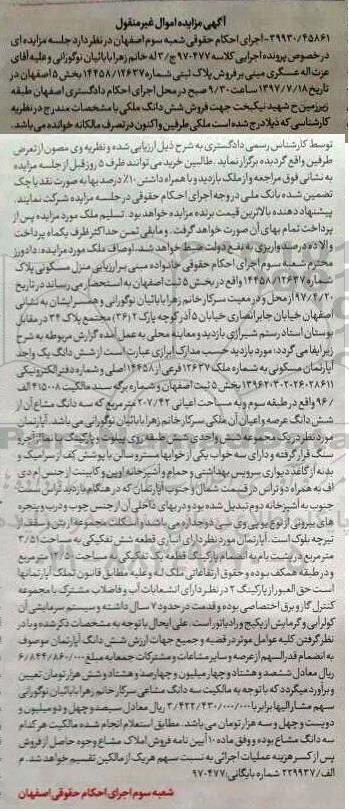 آگهی مزایده اموال غیرمنقول
۳۹۹۳۰/۴۵۸۶۱- اجرای احکام حقوقی شعبه سوم اصفهان در نظر دارد جلسه مزایده ای
در خصوص پرونده اجرایی کلاسه ۹۷۰۴۷۷ ج/۳ له خانم زهرا بابائیان نوگورانی و علیه آقای
عزت اله عسگری مبنی بر فروش پلاک ثبتی شماره ۱۴۴۵۸/۱۲۶۳۷ بخش ۵ اصفهان در
تاریخ ۱۳۹۷/۷/۱۸ ساعت ۹/۳۰ صبح در محل اجرای احکام دادگستری اصفهان طبقه
زیرزمین خ شهید نیکبخت جهت فروش شش دانگ ملکی با مشخصات مندرج در نظریه
کارشناسی که ذیلا درج شده است ملکی طرفین واکنون در تصرف مالکانه خوانده می باشد.
توسط کارشناس رسمی دادگستری به شرح ذیل ارزیابی شده و نظریه وی مصون از تعرض
طرفین واقع گردیده برگزار نماید . طالبین خرید می توانند ظرف ۵ روز قبل از جلسه مزایده
به نشانی فوق مراجعه و از ملک بازدید و با همراه داشتن ۱۰٪ درصد بها به صورت نقد یا چک
تضمین شده بانک ملی در وجه اجرای احکام حقوقی در جلسه مزایده شرکت نمایند.
پیشنهاد دهنده بالاترین قیمت برنده مزایده خواهد بود . تسلیم ملک مورد مزایده پس از
پرداخت تمام بهای آن صورت خواهد گرفت . و مابقی ثمن حداکثر ظرف یکماه پرداخت
و الا ده درصد واریزی به نفع دولت ضبط خواهد شد. اوصاف ملک مورد مزایده: دادورز
محترم شعبه سوم اجرای احکام حقوقی خانواده مبنی بر ارزیابی منزل مسکونی پلاک
شماره ۱۴۴۵۸/۱۲۶۳۷ واقع در بخش ۵ ثبت اصفهان به استحضار می رساند در تاریخ
۹۷/۲/۲۰ از محل و در معیت سرکار خانم زهرا بابائیان نوگورانی و همسرایشان به نشانی
اصفهان خیابان جابر انصاری خیابان ۵ آذر کوچه پارک ۲ (۳۶) مجتمع پلاک ۳۴ در مقابل
بوستان استاد رستم شیرازی بازدید و معاینه محلی به عمل آمده گزارش مربوطه به شرح
زیر ایفا می گردد؛ مورد بازدید حسب مدارک ابرازی عبارت است از شش دانگ یک واحد
آپارتمان مسکونی به شماره ملک ۱۲۶۳۷ فرعی از ۱۴۴۵۸ اصلی و شماره دفتر الکترونیکی
۱۳۹۶۲۰۳۰۲۰۲۶۰۲۸۶۱۱ بخش ۵ ثبت اصفهان و شماره برگه سند مالکیت ۴۱۵۰۰۸ الف
/۹۶ واقع در طبقه سوم و به مساحت اعیانی ۲۰۷/۴۲ متر مربع که سه دانگ مشاع آن از
شش دانگ عرصه و اعیان آن ملکی سرکار خانم زهرا بابائیان نوگورانی می باشد. آپارتمان
مورد نظر در یک مجموعه شش واحدی شش طبقه روی پیلوت و پارکینگ با نما آجر و
سنگ قرار گرفته و دارای سه خواب یکی از خوابها مستر و سالن با پوشش کف از سرامیک و
بدنه از کاغذ دیواری سرویس بهداشتی و حمام و آشپزخانه اوپن و کابینت از جنس ام دی
اف به همراه دو تراس در قسمت شمال و جنوب آپارتمان که در هنگام بازدید تراس سمت
جنوب به آشپزخانه دوم تبدیل شده بود و دربهای داخلی آن از جنس چوب و درب و پنجره
های بیرونی از نوع یو پی وی سی دو جداره می باشد و اسکلت مجموعه از بتن و سقف از
تیرچه بلوک است. آپارتمان مورد نظر دارای انباری قطعه شش تفکیکی به مساحت ۳/۵۱
متر مربع در پشت بام به انضمام پارکینگ قطعه یک تفکیکی به مساحت ۱۷/۵۰ متر مربع
و در طبقه همکف بوده و حقوق ارتفاقاتی ملک له و علیه مطابق قانون تملک آپارتمانها
است حق العبور از پارکینگ ۲ در نظر دارای انشعابات آب و فاضلاب مشترک با مجموعه
کنتور گاز و برق اختصاصی بوده و قدمت در حدود ۷ سال داشته و سیستم سرمایشی آن
کولر آبی و گرمایش از پکیج و رادیاتور است. علی ایحال با توجه به مشخصات ذکر شده و با در
نظر گرفتن کلیه عوامل موثر در قضیه و جمیع جهات ارزش شش دانگ آپارتمان موصوف
به انضمام قدرالسهم از عرصه و سایر مشاعات و مشترکات جمعا به مبلغ ۶/۸۴۴/۸۶۰/۰۰۰
ریال معادل ششصد و هشتاد و چهار میلیون و چهارصد و هشتاد و شش هزار تومان تعیین
و برآورد میگردد که با توجه به مالکیت سه دانگ مشاعی سرکار خانم زهرا بابائیان نوگورانی
سهم مشارالیها برابر با ۳/۴۲۲/۴۳۰/۰۰۰ ریال معادل سیصد و چهل و دو میلیون و
دویست و چهل و سه هزار تومان می باشد. مطابق استعلام انجام شده مالکیت هر کدام
سه دانگ مشاع بوده و وفق ماده ۱۰ آیین نامه فروش املاک مشاع وجوه حاصل از فروش
پس از کسر هزینه عملیات اجرائی به نسبت سهم هریک از مالکین تقسیم خواهد شد. م
الف: ۲۲۹۹۳۷ شماره بایگانی: ۹۷۰۴۷۷
شعبه سوم اجرای احکام حقوقی اصفهان